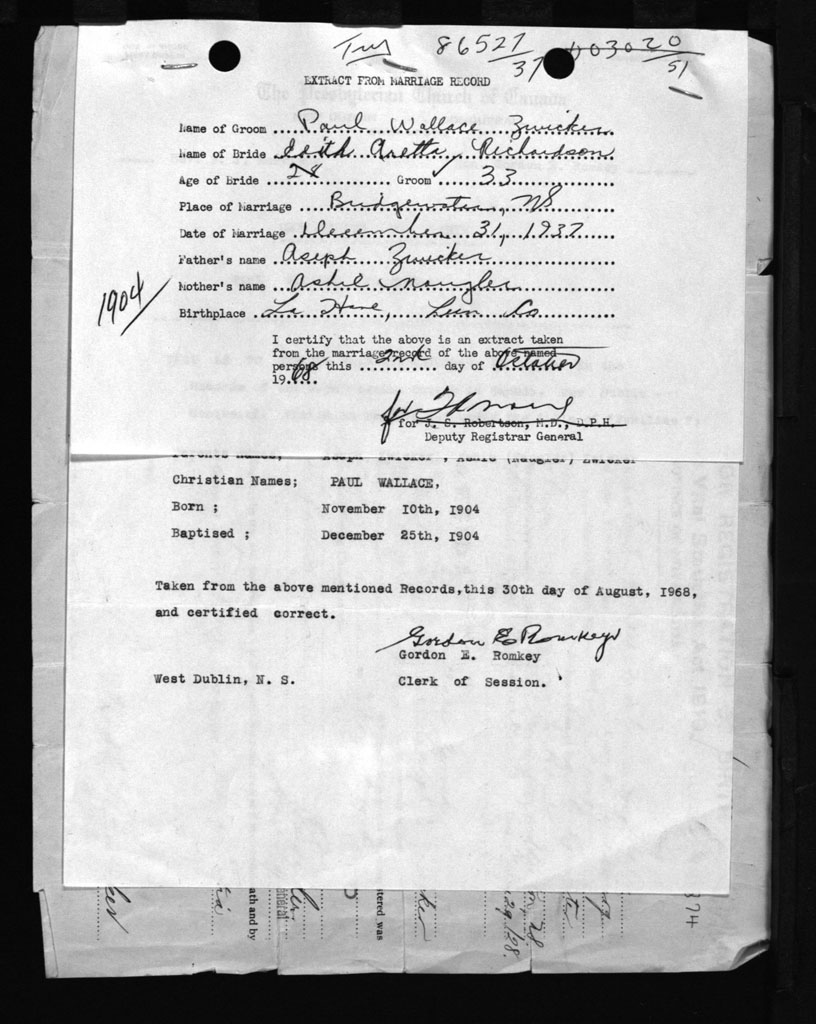 86527
37
403020
51
EXTRACT FROM MARRIAGE RECORD
Name of Groom Paul Wallace Zwicker
Name of Bride Edith Aretta Richardson
Age of Bride 28 Groom 33
Place of Marriage Bridgewater, NS
Date of Marriage December 31, 1937
Father's name Aseph Zwicker
Mother's name Ashel Naugler
1904
Birthplace La Have, Lun Co
I certify that the above is an extract taken
from the marriage record of the above named
persons this 2nd day of October
1968.
for
for J. S. Robertson, M.D., D.P.H.
Deputy Registrar General
Christian Names; PAUL WALLACE,
Born ; November 10th, 1904
Baptised ; December 25th, 1904
Taken from the above mentioned Records,this 30th day of August, 1968,
and certified correct.
Gordon E Romkey
Gordon E. Romkey
West Dublin, N. S. Clerk of Session.
ath and by
stered was